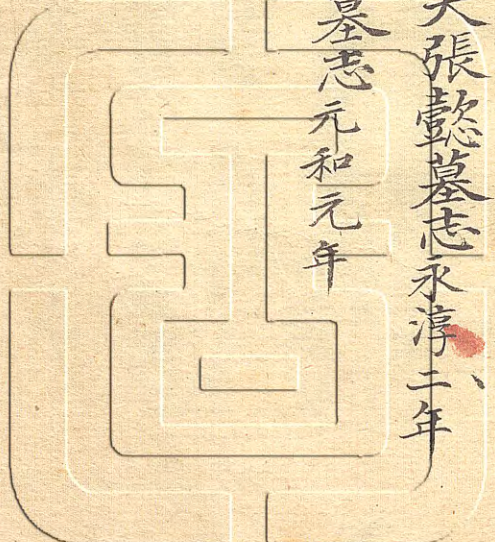 張懿墓志永淳二年
墓志元和元年